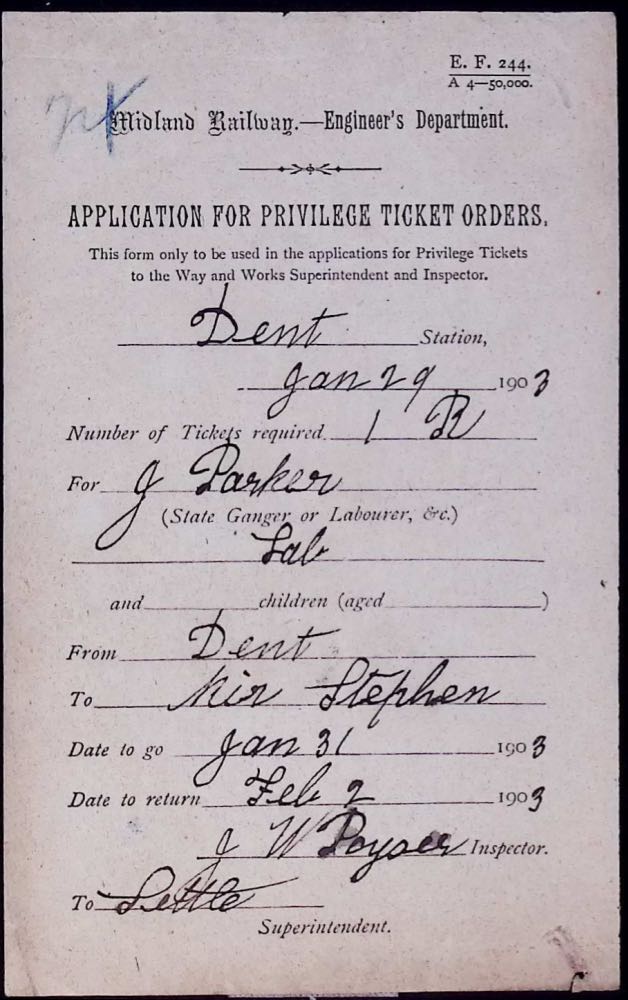 E. F. 244.
A 4—50,000.
Midland Railway.—Engineer's Department.
APPLICATION FOR PRIVILEGE TICKET ORDERS.
This form only to be used in the applications for Privilege Tickets
to the Way and Works Superintendent and Inspector.
Dent Station,
Jan 29 1903
Number of Tickets required 1 R
For J Parker
(State Ganger or Labourer, &c.)
Lab
and children (aged )
From Dent
To Kir Stephen
Date to go Jan 31 1903
Date to return Feb 2 1903
J W Poyser Inspector.
To Settle
Superintendent.